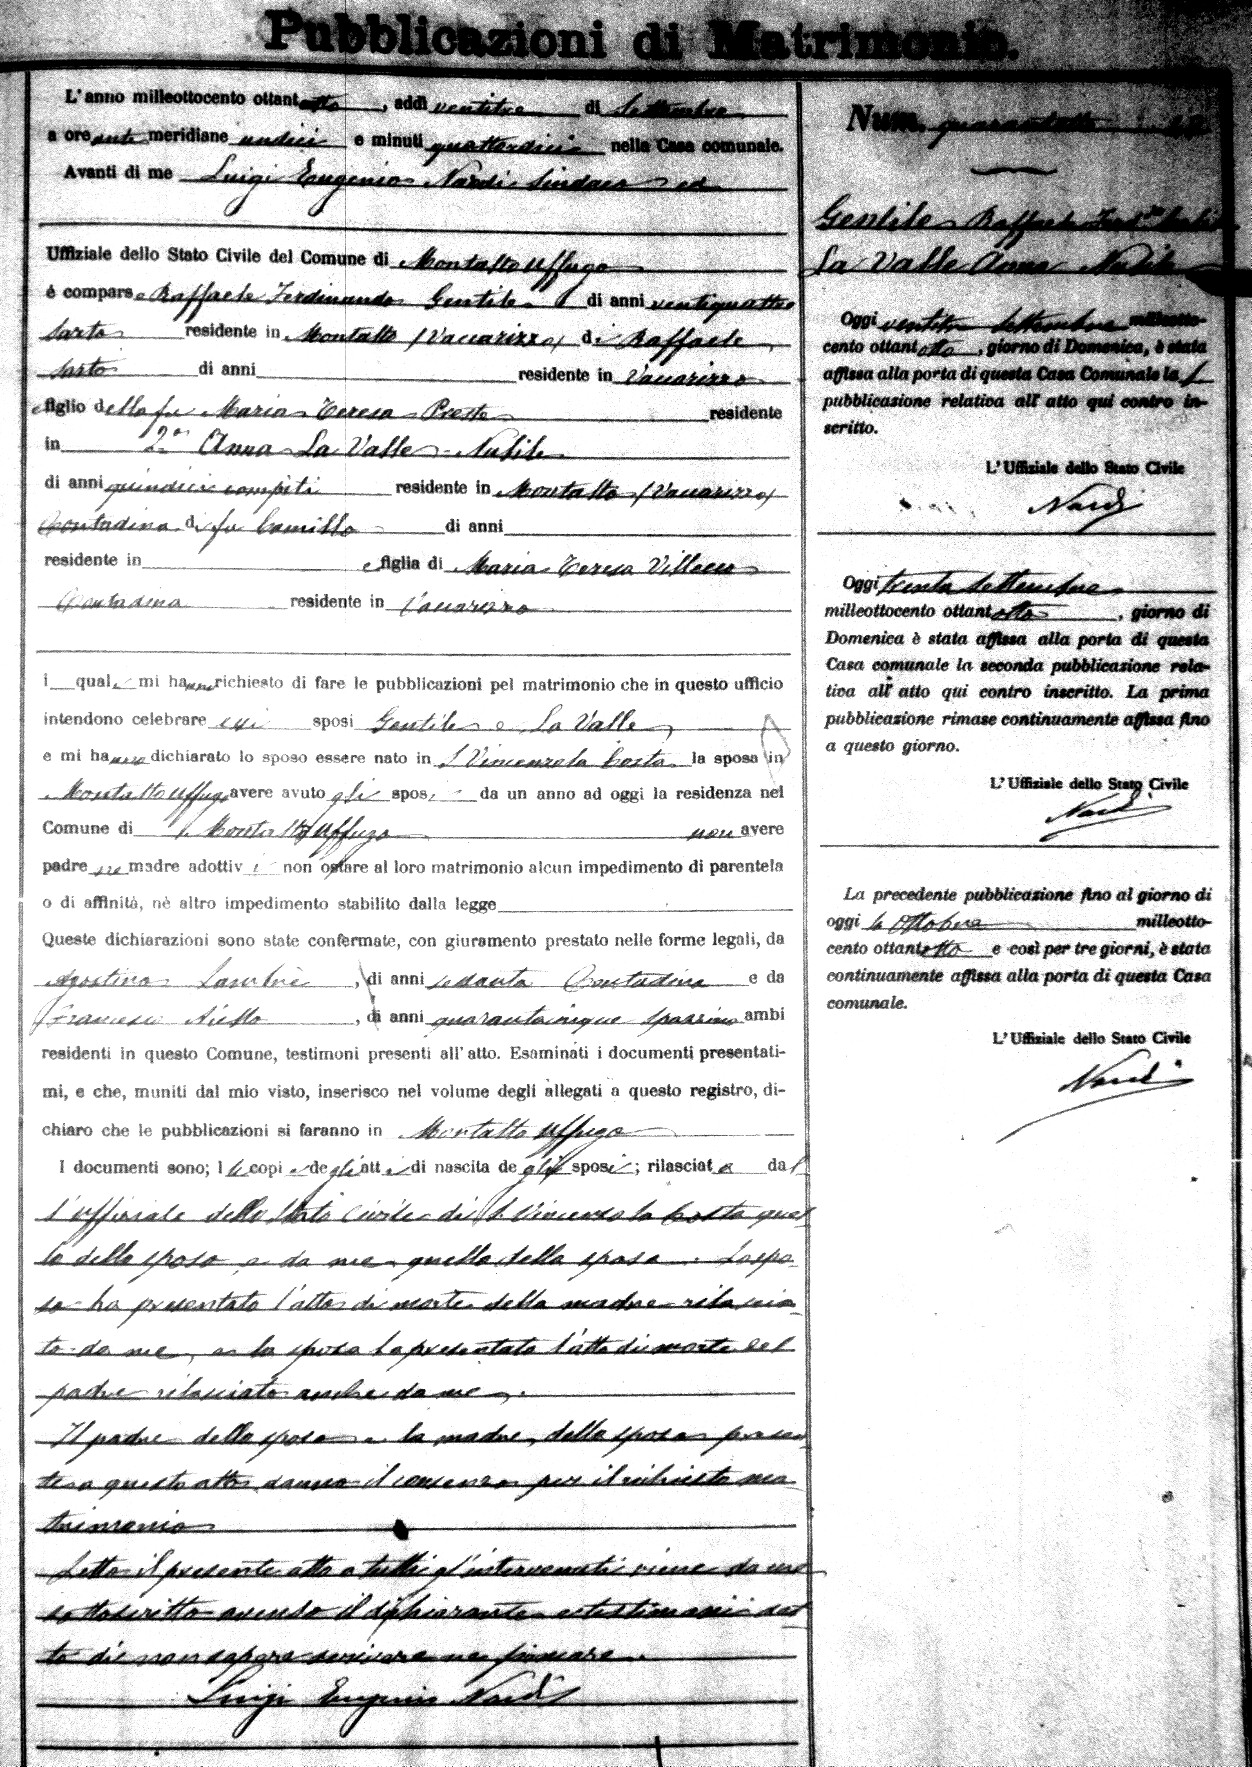 Pubblicazioni di Matrimonio.
L'anno milleottocento ottantotto, addì ventitre di Settembre
a ore ante meridiane undici e minuti quattordici nella Casa comunale.
Avanti di me Luigi Eugenio Nardi Sindaco ed
Uffiziale dello Stato Civile del Comune di Montalto Uffugo
è compars Raffaele Ferdinando Gentile di anni ventiquattro
sarto residente in Montalto (Vaccarizzo) di Raffaele
sarto di anni residente in Vaccarizzo
e figlio della fu Maria Teresa Presta residente
in 2° Anna La Valle Nubile
di anni quindici compiti residente in Montalto (Vaccarizzo)
Contadina di fu Camillo di anni
residente in e figlia di Maria Teresa
Contadina residente in Vaccarizzo
i quali mi hanno richiesto di fare le pubblicazioni pel matrimonio che in questo ufficio
intendono celebrare essi sposi Gentile e La Valle
e mi hanno dichiarato lo sposo essere nato in S Vincenzo la Costa la sposa in
Montalto Uffugo avere avuto gli sposi da un anno ad oggi la residenza nel
Comune di Montalto Uffugo non avere
padre ne madre adottivi non ostare al loro matrimonio alcun impedimento di parentela
o di affinità, nè altro impedimento stabilito dalla legge
Queste dichiarazioni sono state confermate, con giuramento prestato nelle forme legali, da
Agostino , di anni sessanta Contadino e da
Francesco Aiello , di anni quarantacinque spazzino ambi
residenti in questo Comune, testimoni presenti all'atto. Esaminati i documenti presentati-
mi, e che, muniti dal mio visto, inserisco nel volume degli allegati a questo registro, di-
chiaro che le pubblicazioni si faranno in Montalto Uffugo
I documenti sono; le copie degli atti di nascita degli sposi; rilasciate dal
l'uffiziale dello Stato Civile di S Vincenzo la Costa quel
lo dello sposo e da me quello della sposa. Lo spo-
so ha presentato l'atto di morte della madre rilascia-
to da me, e la sposa ha presentato l'atto di morte del
padre rilasciato anche da me.
Il padre dello sposo e la madre della sposa presen
ti a questo atto danno il consenso per il richiesto ma
trimonio
Letto il presente atto a tutti gl'intervenuti viene da me
sottoscritto avendo il dichiarante e testimoni det
to di non sapere scrivere ne firmare.
Luigi Eugenio Nardi
Num. quarantotto 48
Gentile Raffaele Ferd.do
La Valle Anna Nubile
Oggi ventitre Settembre milleotto-
cento ottantotto, giorno di Domenica, è stata
affissa alla porta di questa Casa Comunale la 1
pubblicazione relativa all'atto qui contro in-
scritto.
L'Uffiziale dello Stato Civile
Nardi
Oggi trenta Settembre
milleottocento ottantotto, giorno di
Domenica è stata affissa alla porta di questa
Casa comunale la seconda pubblicazione rela-
tiva all'atto qui contro inscritto. La prima
pubblicazione rimase continuamente affissa fino
a questo giorno.
L'Uffiziale dello Stato Civile
Nardi
La precedente pubblicazione fino al giorno di
oggi Ottobre milleotto-
cento ottantotto e così per tre giorni, è stata
continuamente affissa alla porta di questa Casa
comunale.
L'Uffiziale dello Stato Civile
Nardi